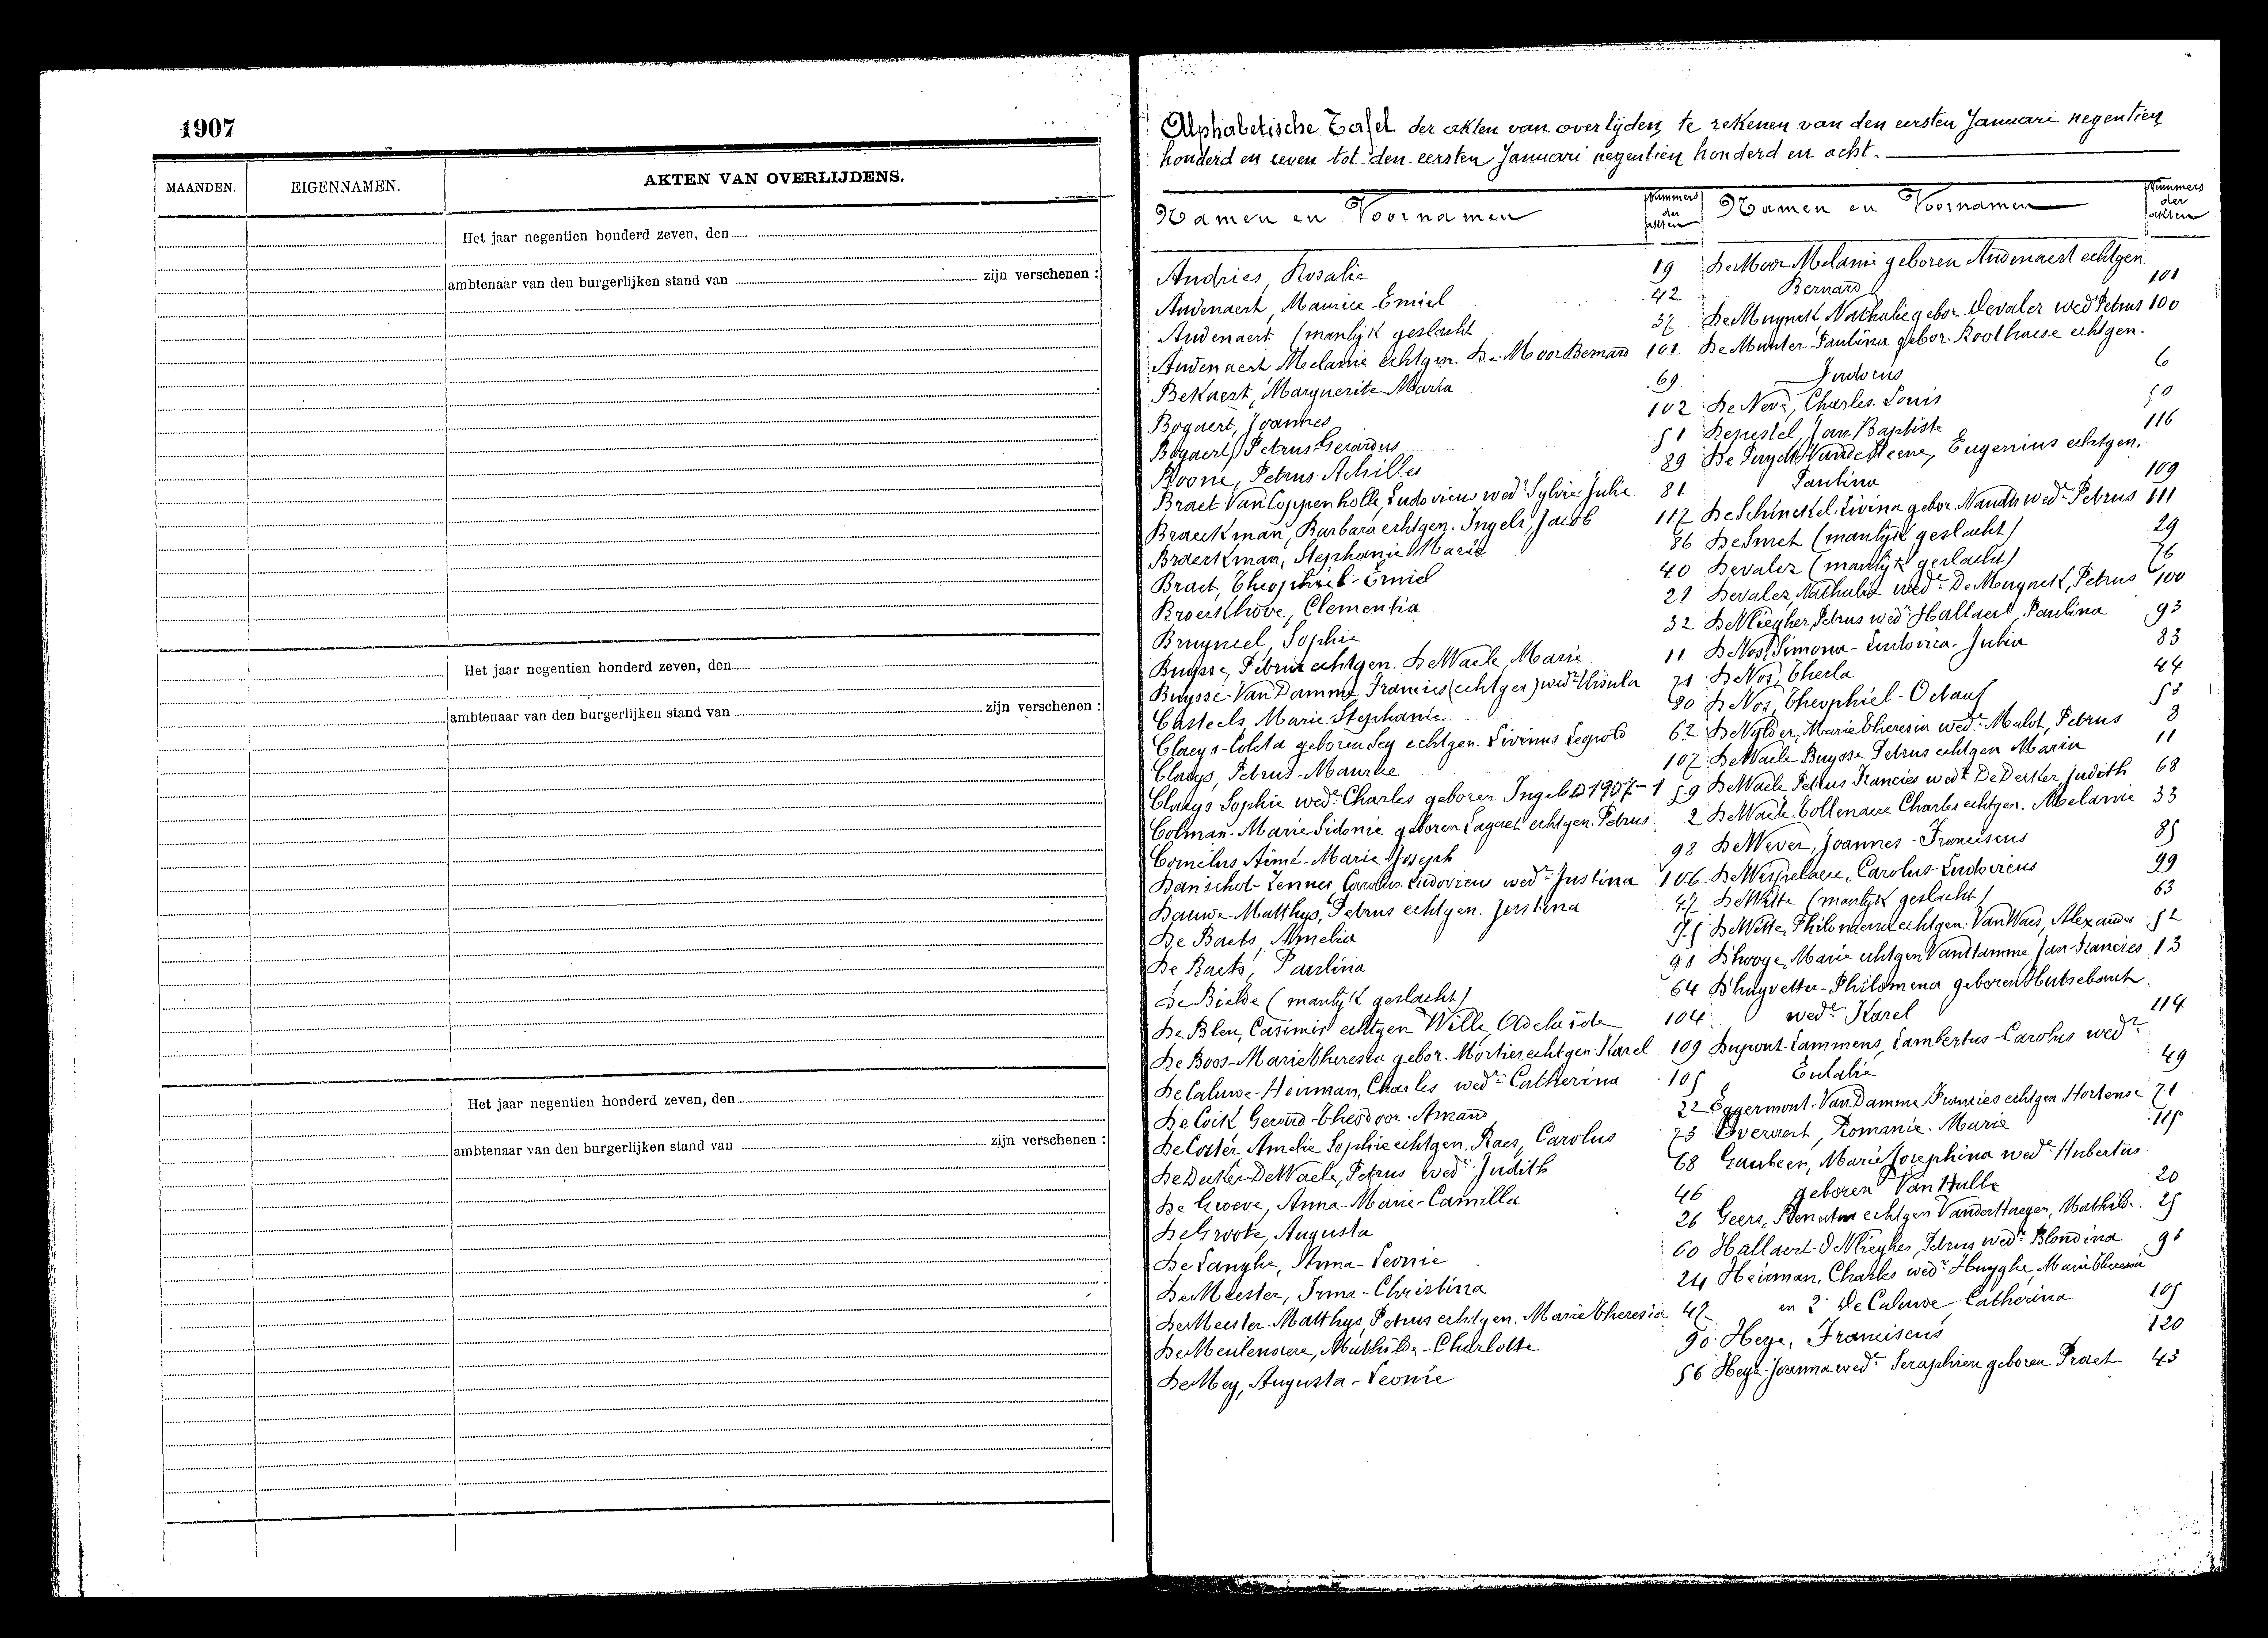 1907
MAANDEN. EIGENNAMEN. AKTEN VAN OVERLIJDENS.
Het jaar negentien honderd zeven, den
ambtenaar van den burgerlijken stand van zijn verschenen :
Het jaar negentien honderd zeven, den
ambtenaar van den burgerlijken stand van zijn verschenen :
Het jaar negentien honderd zeven, den
ambtenaar van den burgerlijken stand van zijn verschenen :
Alphabetische Tafel der akten van overlijden, te rekenen van den eersten Januari negentien
honderd en zeven tot den eersten Januari negentien honderd en acht.
Namen en Voornamen Nummers der akten
Andries, Rosalie 19
Audenaert, Maurice-Emiel 42
Audenaert (manlijk geslacht 37
Audenaert Melanie echtgen. De Moor Bernard 101
Bekaert, Marguerite-Maria 69
Bogaert, Joannes 102
Bogaert, Petrus Gerardus 51
Boone, Petrus-Achilles 89
Braet-Van Coppenholle, Ludovicus wedr Sylvie Julie 81
Braeckman, Barbara echtgen. Ingels, Jacob 117
Braeckman, Stephanie Marie 86
Braet, Theophiel-Emiel 40
Broeckhove, Clementia 21
Bruyneel, Sophie 32
Buysse, Petrus echtgen. De Waele, Marie 11
Buysse-Van Damme, Francies (echtgen) wedr Ursula 71
Casteels, Marie Stephanie 80
Claeys-Coleta geboren Sey echtgen. Livinus 62
Claeys, Petrus-Maurice 107
Claeys Sophie wede Charles geboren Ingels 1907-1 59
Colman-Marie Sidonie geboren Lagaet echtgen. Petrus 2
Cornelus, Aimé-Marie Joseph 98
Danschot-Zenner, Carolus-Ludovicus wedr Justina 106
Dauwe-Matthys, Petrus echtgen. Justina 47
De Baets, Amelia 95
De Baets, Paulina 91
De Bielde (manlijk geslacht) 64
De Blen, Casimir echtgen Wille, Adelaïde 104
De Boos-Marie Theresia gebor. Mortier echtgen. Karel 109
De Caluwe-Heirman, Charles wedr Catherina 105
De Cock Gerard-Theodoor-Amand 22
De Coster Amelie Sophie echtgen. Raes, Carolus 73
De Deister-De Waele, Petrus wedr Judith 68
De Groeve, Anna-Marie-Camilla 46
De Groote, Augusta 26
De Langhe, Anna-Leonie 60
De Meester, Irma-Christina 24
De Meester-Matthys, Petrus echtgen. Marie Theresia 47
De Meulenaere, Mathilde-Charlotte 90
De Mey, Augusta-Leonie 56
Namen en Voornamen Nummers der akten
De Moor Melanie geboren Audenaert echtgen.
Bernard 101
De Muynck, Nathalie gebor. Devaler wed Petrus 100
De Munter-Paulina gebor. Roothaese echtgen.
Judocus 6
De Neve, Charles-Louis 50
Depestel, Jan Baptiste 116
De Vandesteene, Eugenius echtgen.
Paulina 109
De Schinckel-Livina gebor. Naudts wede Petrus 111
De Smet (manlijk geslacht) 29
Devaler (manlijk geslacht) 76
Devaler, Nathalie wede De Muynck, Petrus 100
De Vliegher, Petrus wedr Hallaert, Paulina 93
De Vos, Simona-Ludovica-Julia 83
De Vos, Thecla 44
De Vos, Theophiel-Octaaf 53
De Vylder, Marie Theresia wede Malot, Petrus 8
De Waele-Buysse Petrus echtgen Maria 11
De Waele Petrus Francies wedr De Deister Judith 68
De Waele-Tollenaere Charles echtgen. Melanie 33
De Wever, Joannes-Franciscus 85
De Wispelaere, Carolus-Ludovicus 99
De Witte (manlijk geslacht) 63
De Witte, Philomena echtgen. Van Waes, Alexander 52
D'hooge, Marie echtgen Vandamme, Jan-Francies 13
D'huyvetter-Philomena geboren Hutsebaut
wede Karel 114
Dupont-Lammens, Lambertus-Carolus wedr
Eulalie 49
Eggermont-Van Damme Francies echtgen. Hortense 71
Everaert, Romanie-Marie 115
Gauleen, Marie Josephina wede Hubertus
geboren Van Hulle 20
Geers, Renatus echtgen Vanderhaegen, Mathilde 25
Hallaert-De Vliegher, Petrus wedr Blondina 93
Heirman, Charles wedr Huyghe, Marie Theresia
en 2e De Caluwe Catherina 105
Heye, Franciscus 120
Heye-Joanna wede Seraphien geboren Praet 43